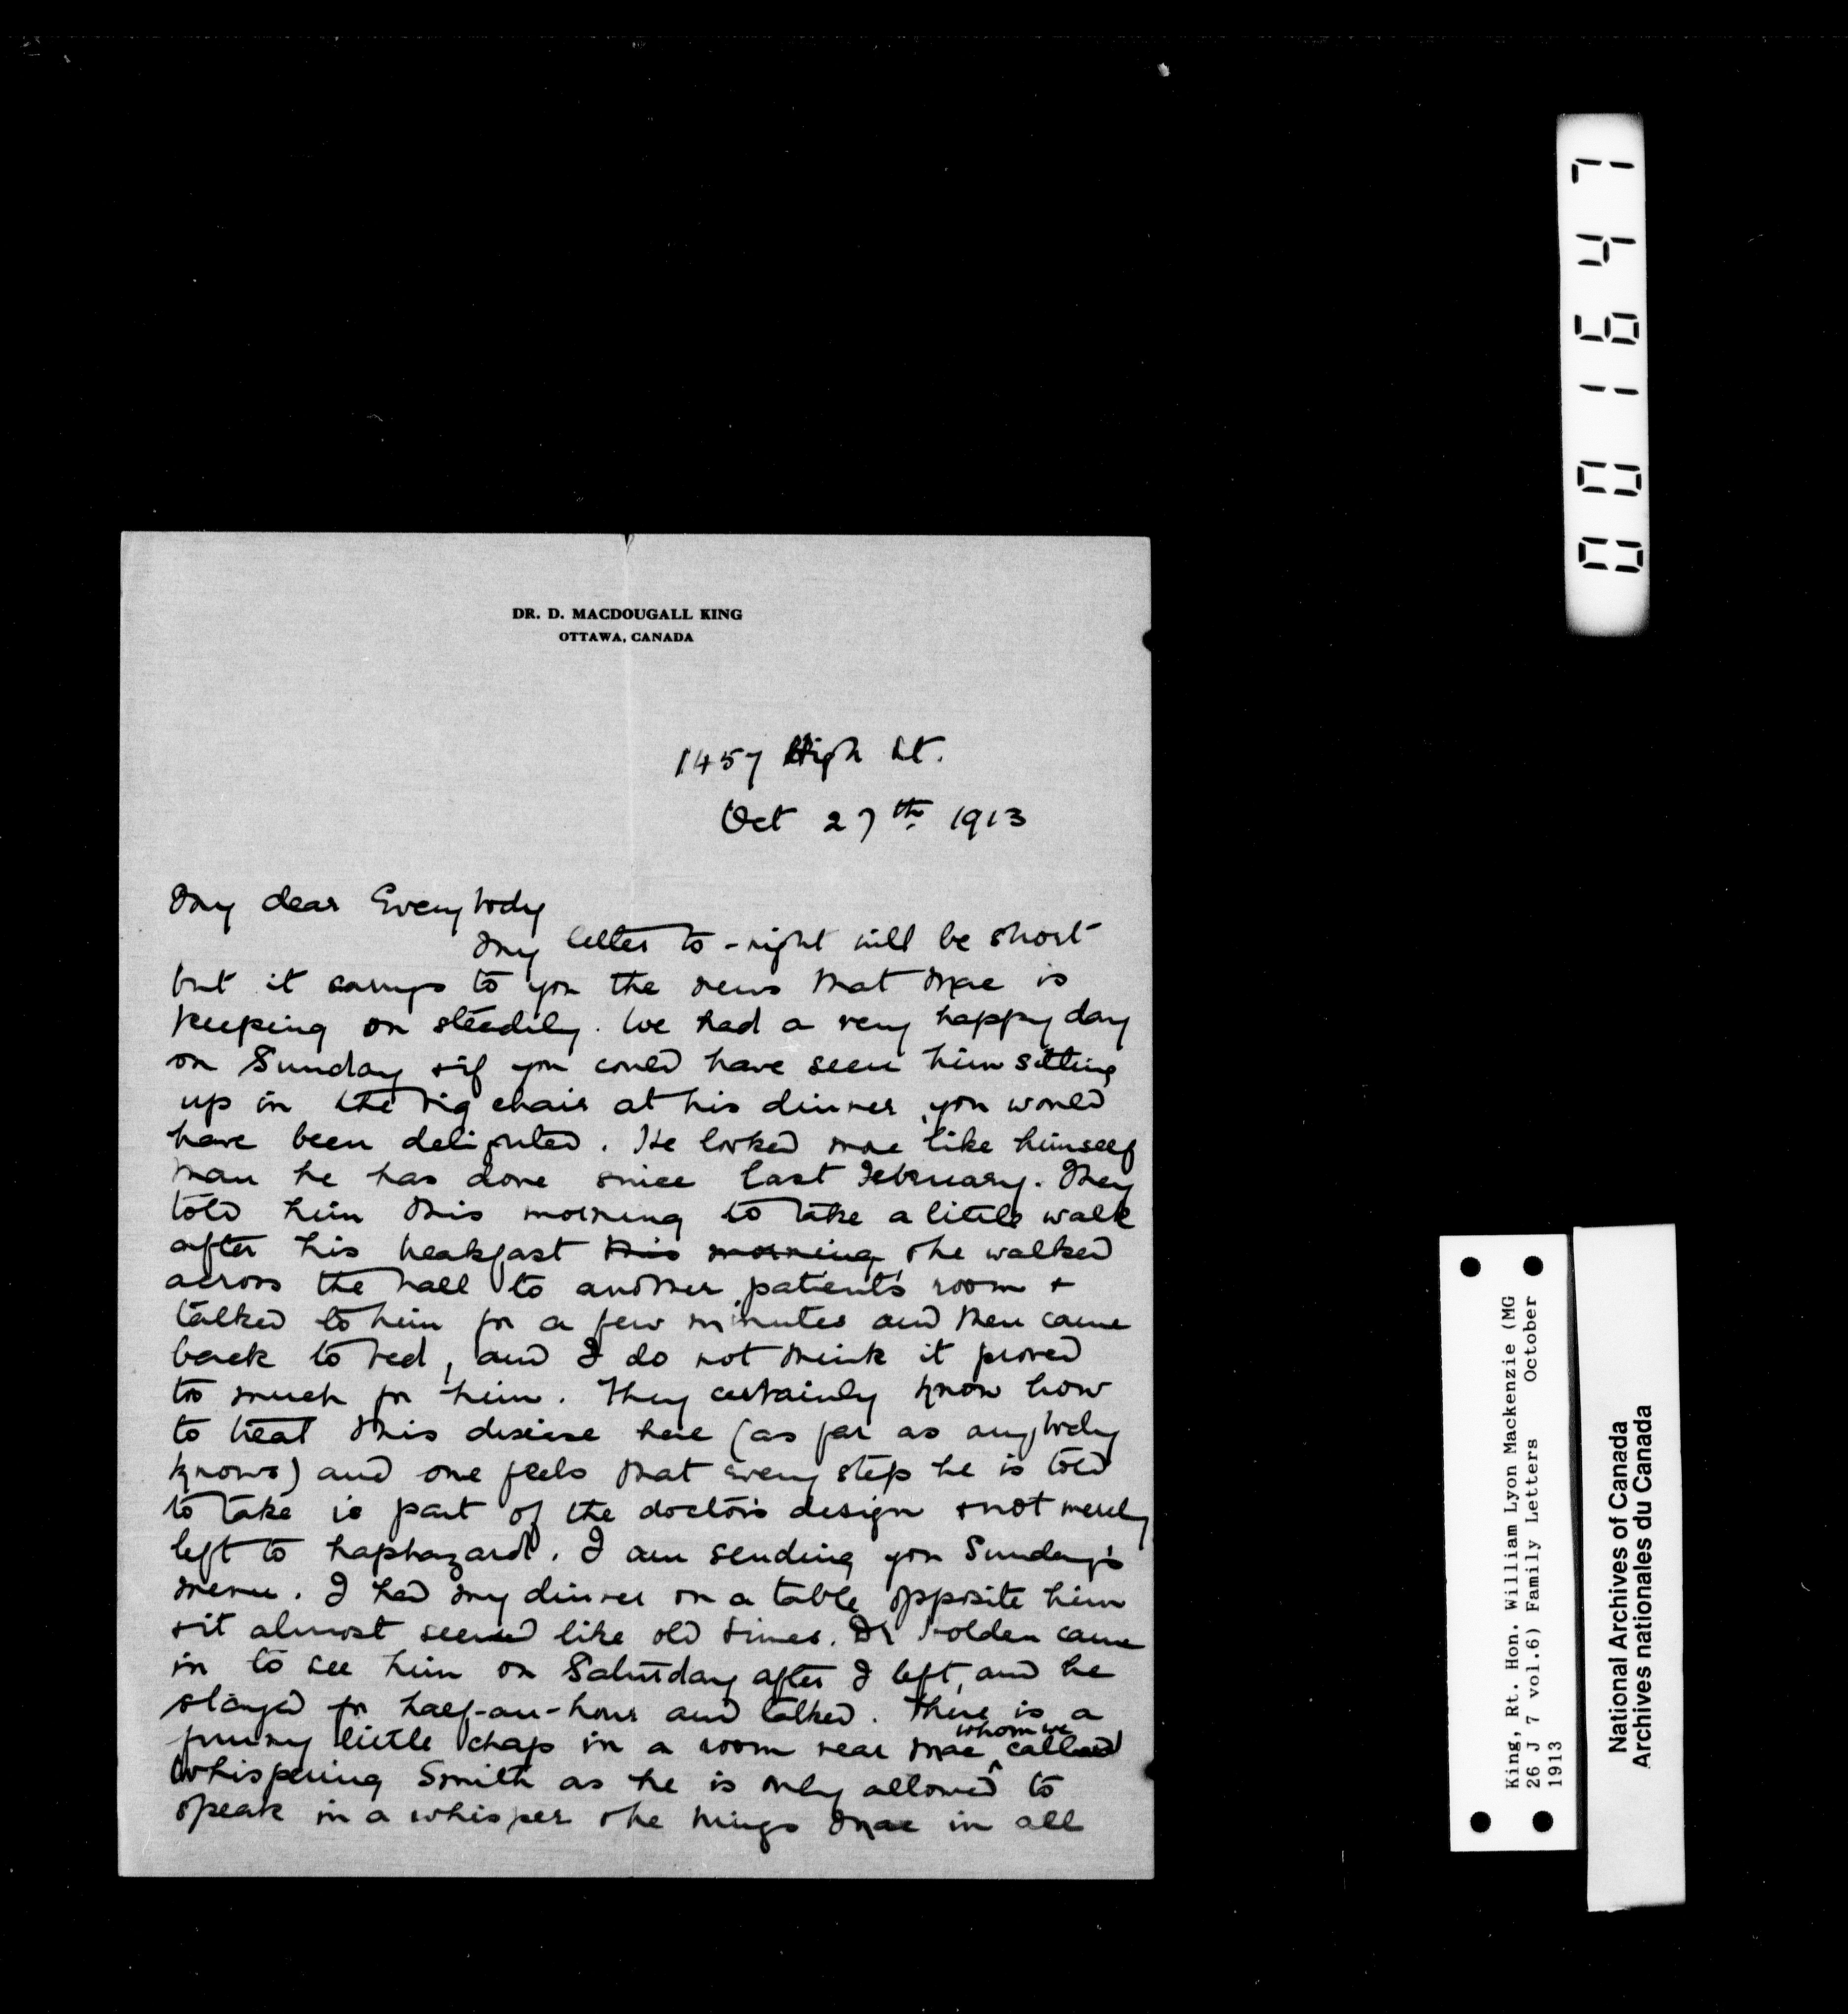 DR. D. MACDOUGALL KING
OTTAWA, CANADA
1457 High St.
Oct 27th 1913
My dear Everybody
My letter to-night will be short
but it carrys to you the news that Mac is
keeping on steadily. We had a very happy day
on Sunday & if you could have seen him sitting
up in the big chair at his dinner, you would
have been delighted. He looked more like himself
than he has done since last February. They
told him this morning to take a little walk
after his breakfast this morning & he walked
across the hall to another patient's room &
talked to him for a few minutes and then came
back to bed, and I do not think it proved
too much for him. They certainly know how
to treat this disease here (as far as anybody
knows) and one feels that every step he is told
to take is part of the doctor's design & not merely
left to haphazard. I am sending you Sunday's
menu. I had my dinner on a table opposite him
& it almost seemed like old times. Dr Holden came
in to see him on Saturday after I left, and he
stayed for half-an-hour and talked. There is a
funny little chap in a room near Mac whom we called
Whispering Smith as he is only allowed to
speak in a whisper & he brings Mac in all
0001647
King, Rt. Hon. William Lyon Mackenzie (MG
26 J 7 vol.6) Family Letters October
1913
National Archives of Canada
Archives nationales du Canada